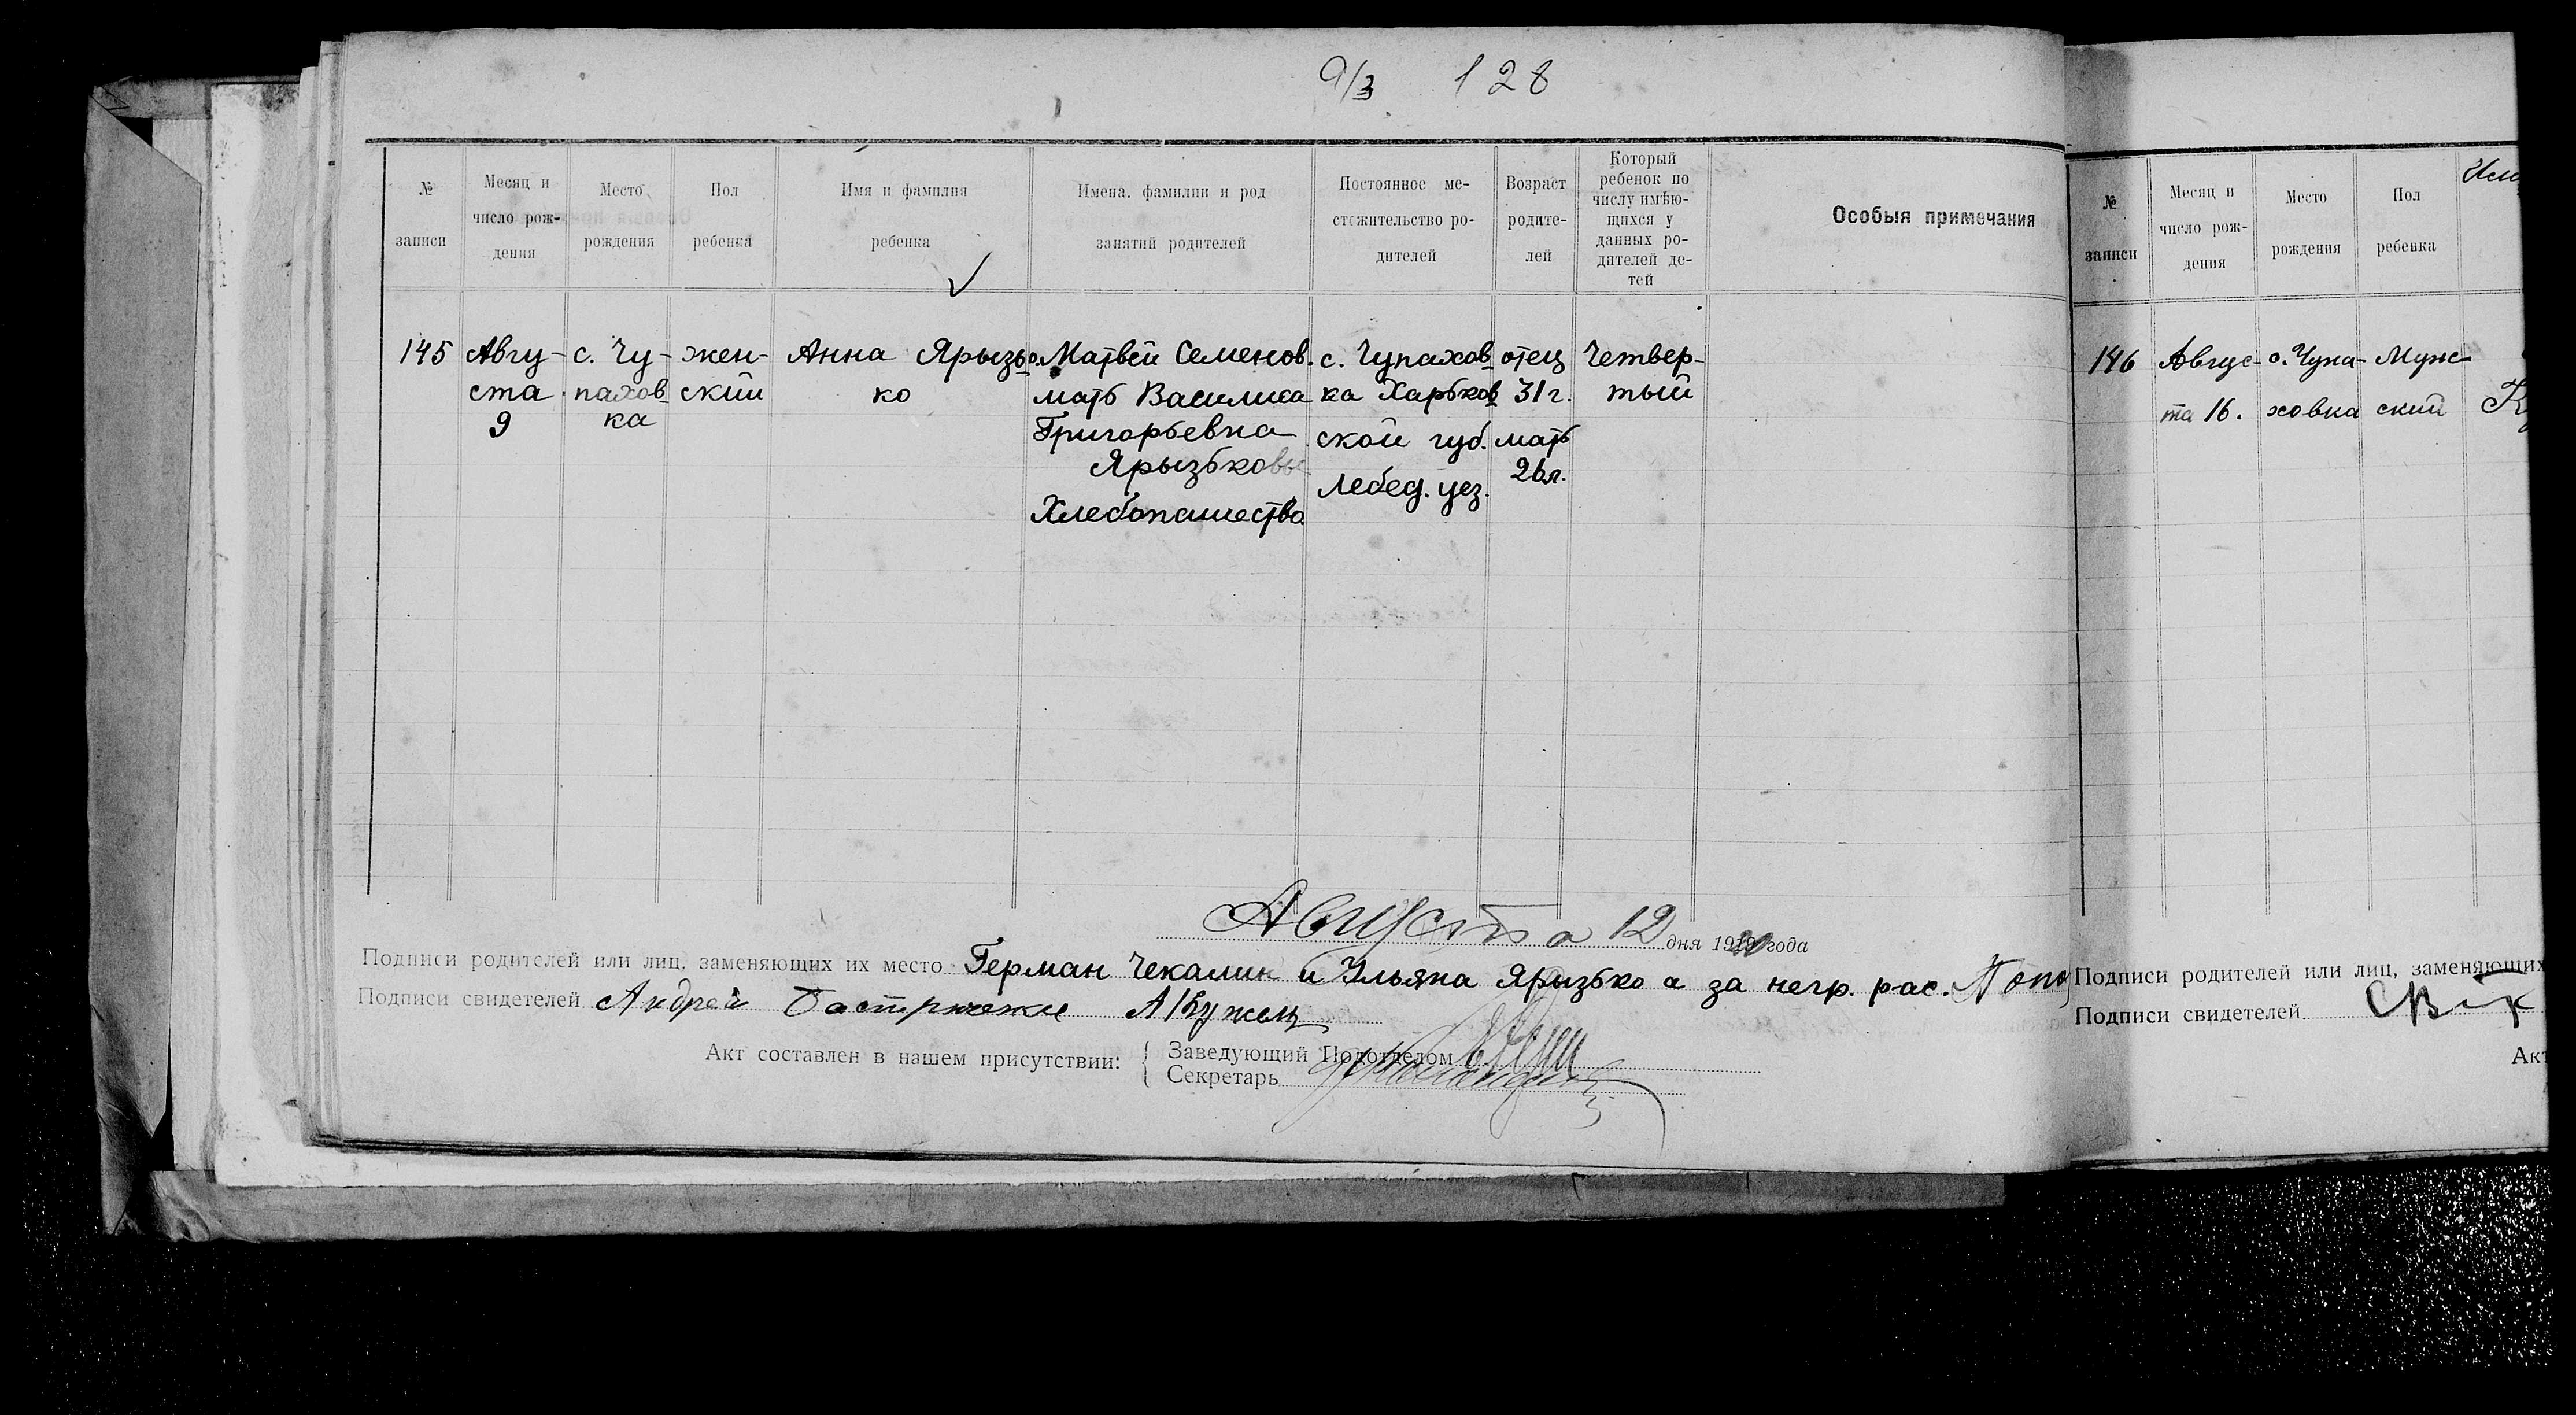 9/3 128
№ записи
Месяц и число рож-дения
Место рождения
Пол ребенка
Имя и фамилия ребенка
Имена. фамилии и род занятий родителей
Постоянное ме-стожительство ро-дителей
Возраст родите-лей
Который ребенок по числу имѣю-щихся у данных ро-дителей де-тей
Особыя примечания
145
Авгу-
ста
9
с. Чу-
пахов
ка
жен-
ский
Анна Ярызь
ко
о. Матвей Семенов.
мать Василиса
Григорьевна
Ярызьковы
Хлебопашество
с. Чупахов
ка Харьков
ской губ.
Лебед. уез.
отец
31 г.
мать
26 л.
Четвер-
тый
Августа 12 дня 19 года
Подписи родителей или лиц, заменяющих их место Герман Чекалин и Ульяна Ярызько а за негр. рас.
Подписи свидетелей Андрей
Акт составлен в нашем присутствии:
Заведующий Подотделом
Секретарь
№ записи
Месяц и число рож-дения
Место рождения
Пол ребенка
146
Авгус-
та 16.
с. Чупа-
ховка
Муж-
ский
Подписи родителей или лиц, заменяющих
Подписи свидетелей
Акт